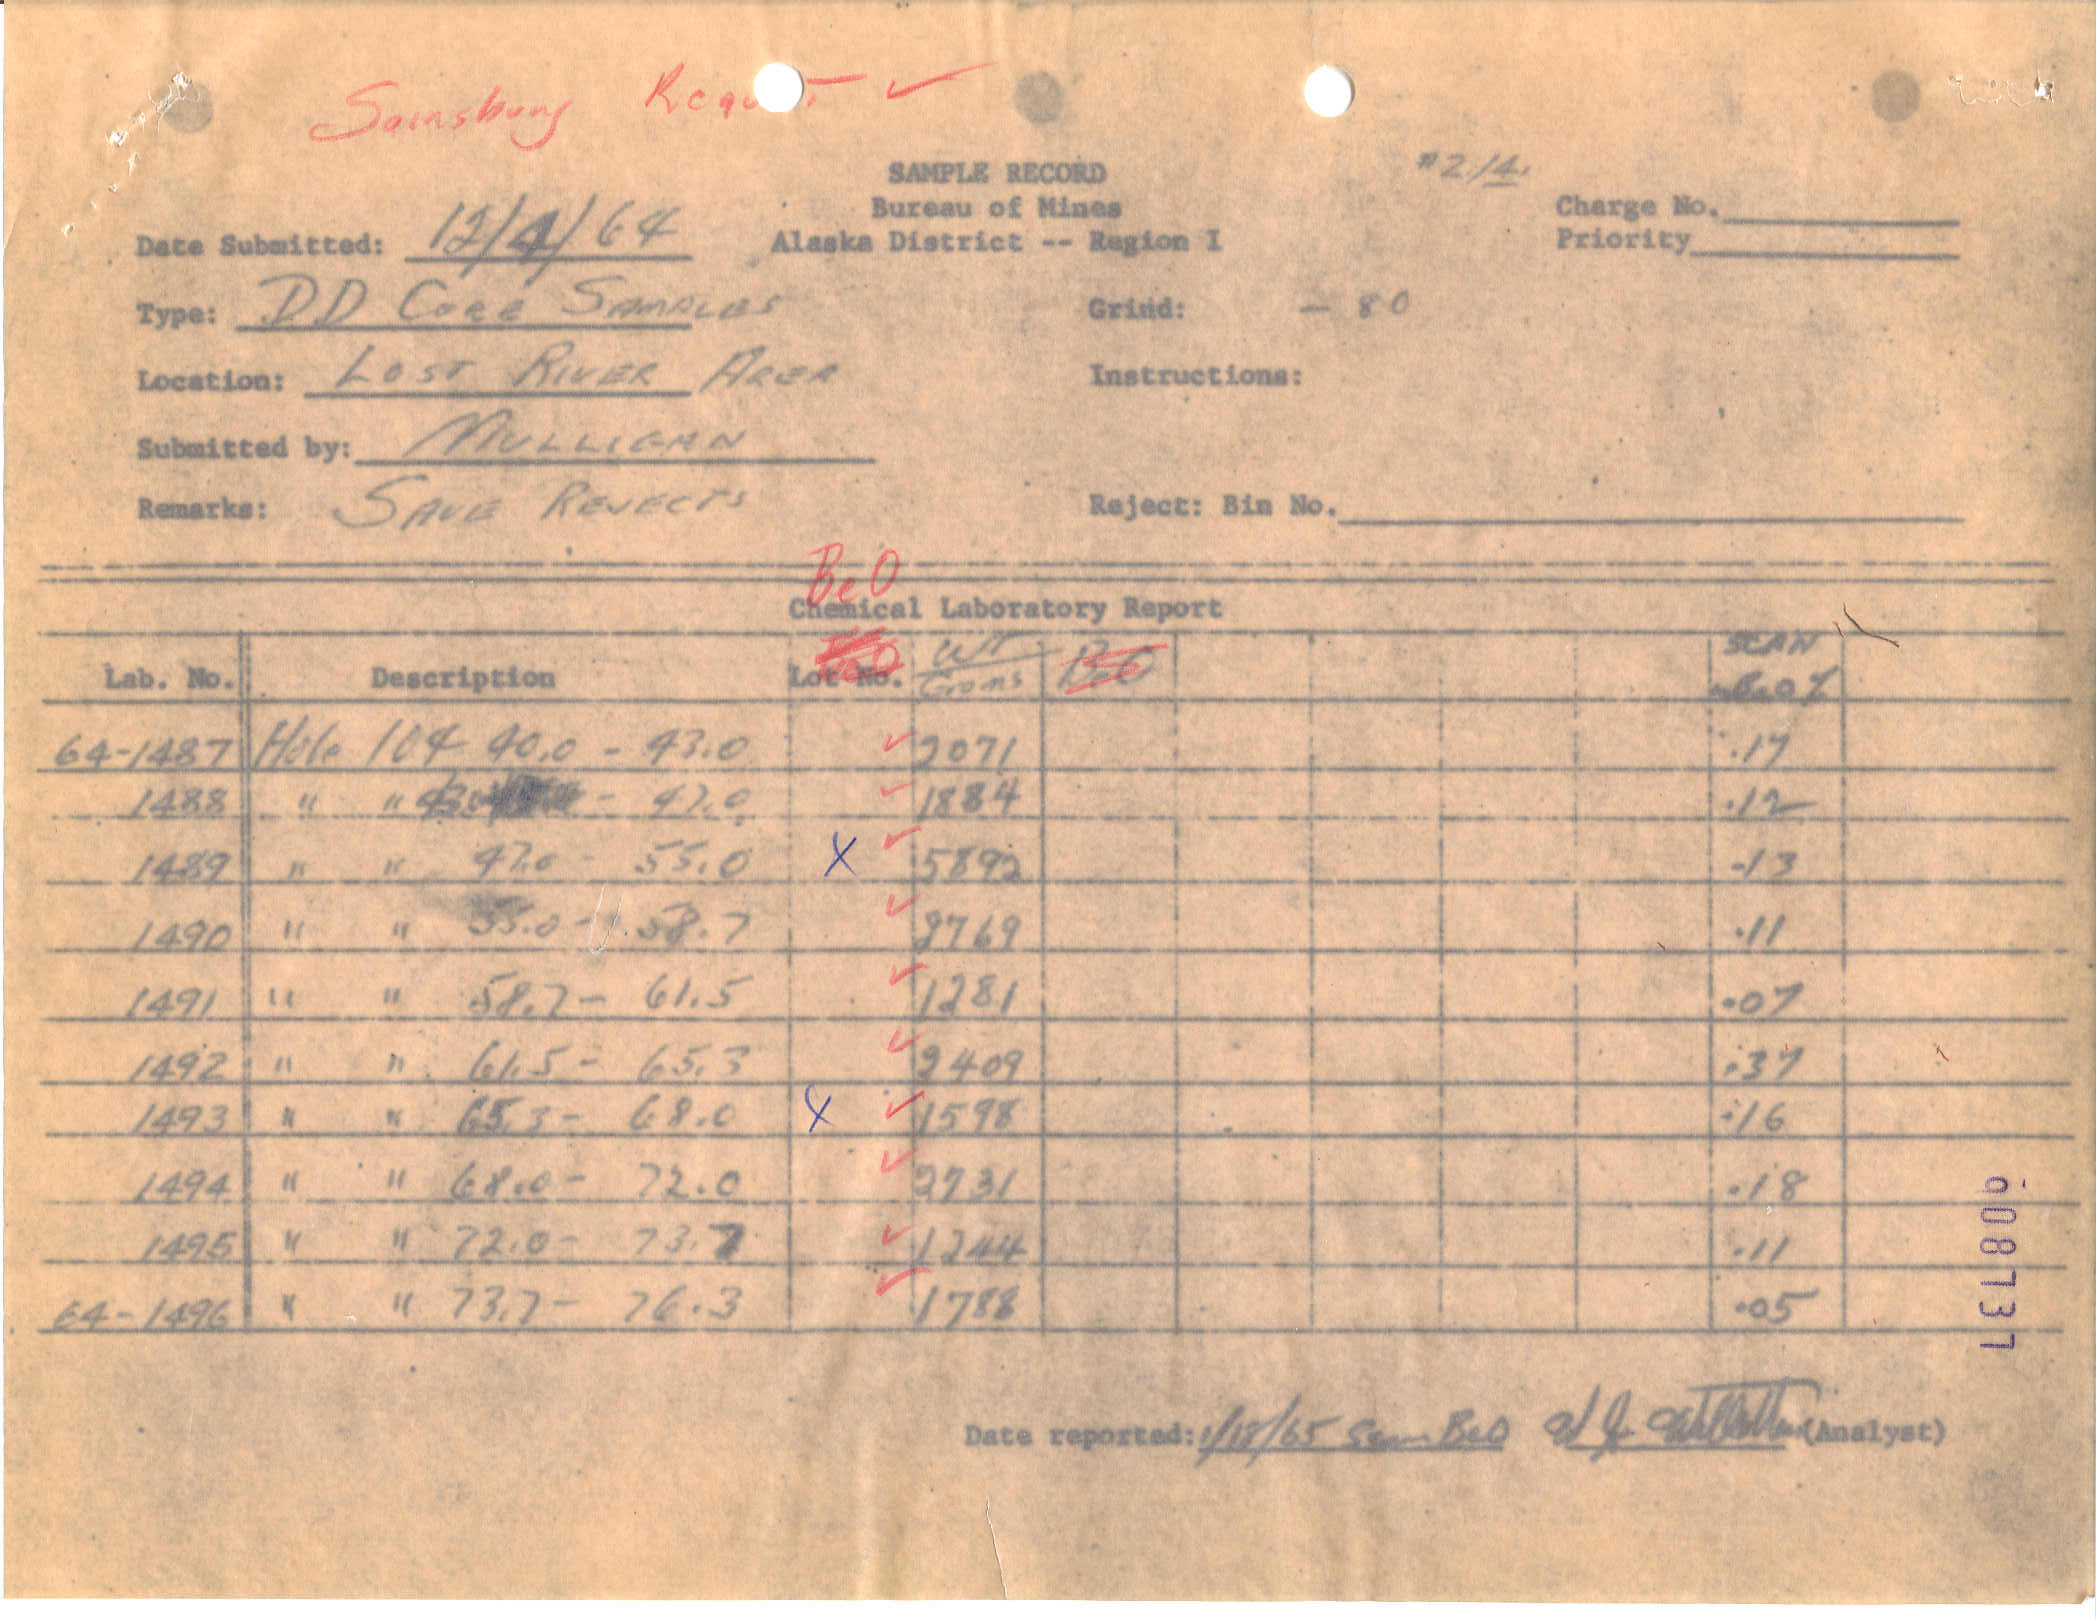 Sainsbury Request ✓
SAMPLE RECORD
Bureau of Mines
Alaska District -- Region I
#214
Charge No.
Priority
Date Submitted: 12/4/64
Type: DD Core Samples
Grind: - 80
Location: Lost River Area
Instructions:
Submitted by: Mulligan
Remarks: Save Rejects
Reject: Bin No.
BeO
Chemical Laboratory Report
Lab. No. Description Lot No. WT Grams BeO SCAN BeO %
64-1487 Hole 104 40.0 - 43.0 ✓ 2071 .17
1488 " " 43.0 - 47.0 ✓ 1884 .12
1489 " " 47.0 - 55.0 X ✓ 5892 .13
1490 " " 55.0 - 58.7 ✓ 2769 .11
1491 " " 58.7 - 61.5 ✓ 1281 .07
1492 " " 61.5 - 65.3 ✓ 2409 .37
1493 " " 65.3 - 68.0 X ✓ 1598 .16
1494 " " 68.0 - 72.0 ✓ 2731 .18
1495 " " 72.0 - 73.7 ✓ 1244 .11
64-1496 " " 73.7 - 76.3 ✓ 1788 .05
Date reported: 1/18/65 Scan BeO (Analyst)